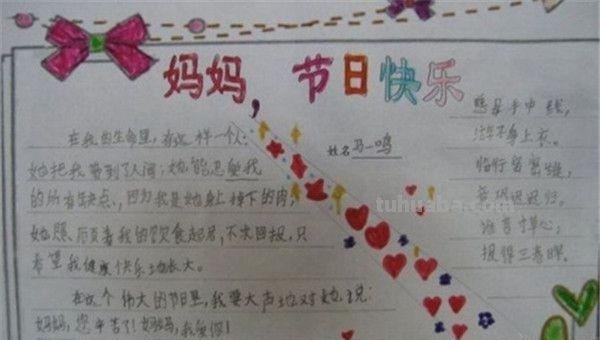 妈妈，节日快乐
姓名马一鸣
在我的生命里，有这样一个人：
她把我带到了人间；她能忍受我
的所有缺点，因为我是她身上掉下的肉；
她照顾着我的饮食起居，不求回报，只
希望我健康快乐地长大。
在这个伟大的节日里，我要大声地对她说：
妈妈，您辛苦了！妈妈，我爱你！
慈母手中线，
游子身上衣。
临行密密缝，
意恐迟迟归。
谁言寸草心，
报得三春晖。
tuhuaba.com